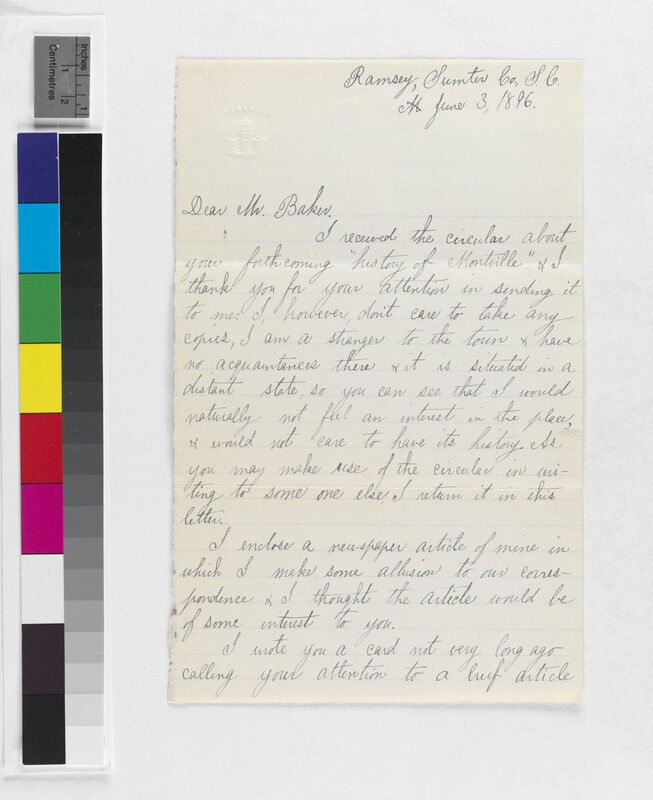 Inches
1
Centimetres
1
2
Ramsey, Sumter Co, S.C.
June 3, 1896.
Dear Mr. Baker.
I received the circular about
your forthcoming "history of Montville" & I
thank you for your attention in sending it
to me. I, however, don't care to take any
copies, I am a stranger to the town & have
no acquaintances there & it is situated in a
distant state, so you can see that I would
naturally not feel an interest in the place,
& would not care to have its history. As
you may make use of the circular in wri-
ting to some one else, I return it in this
letter.
I enclose a newspaper article of mine in
which I make some allusion to our corres-
pondence & I thought the article would be
of some interest to you.
I wrote you a card not very long ago
calling your attention to a brief article